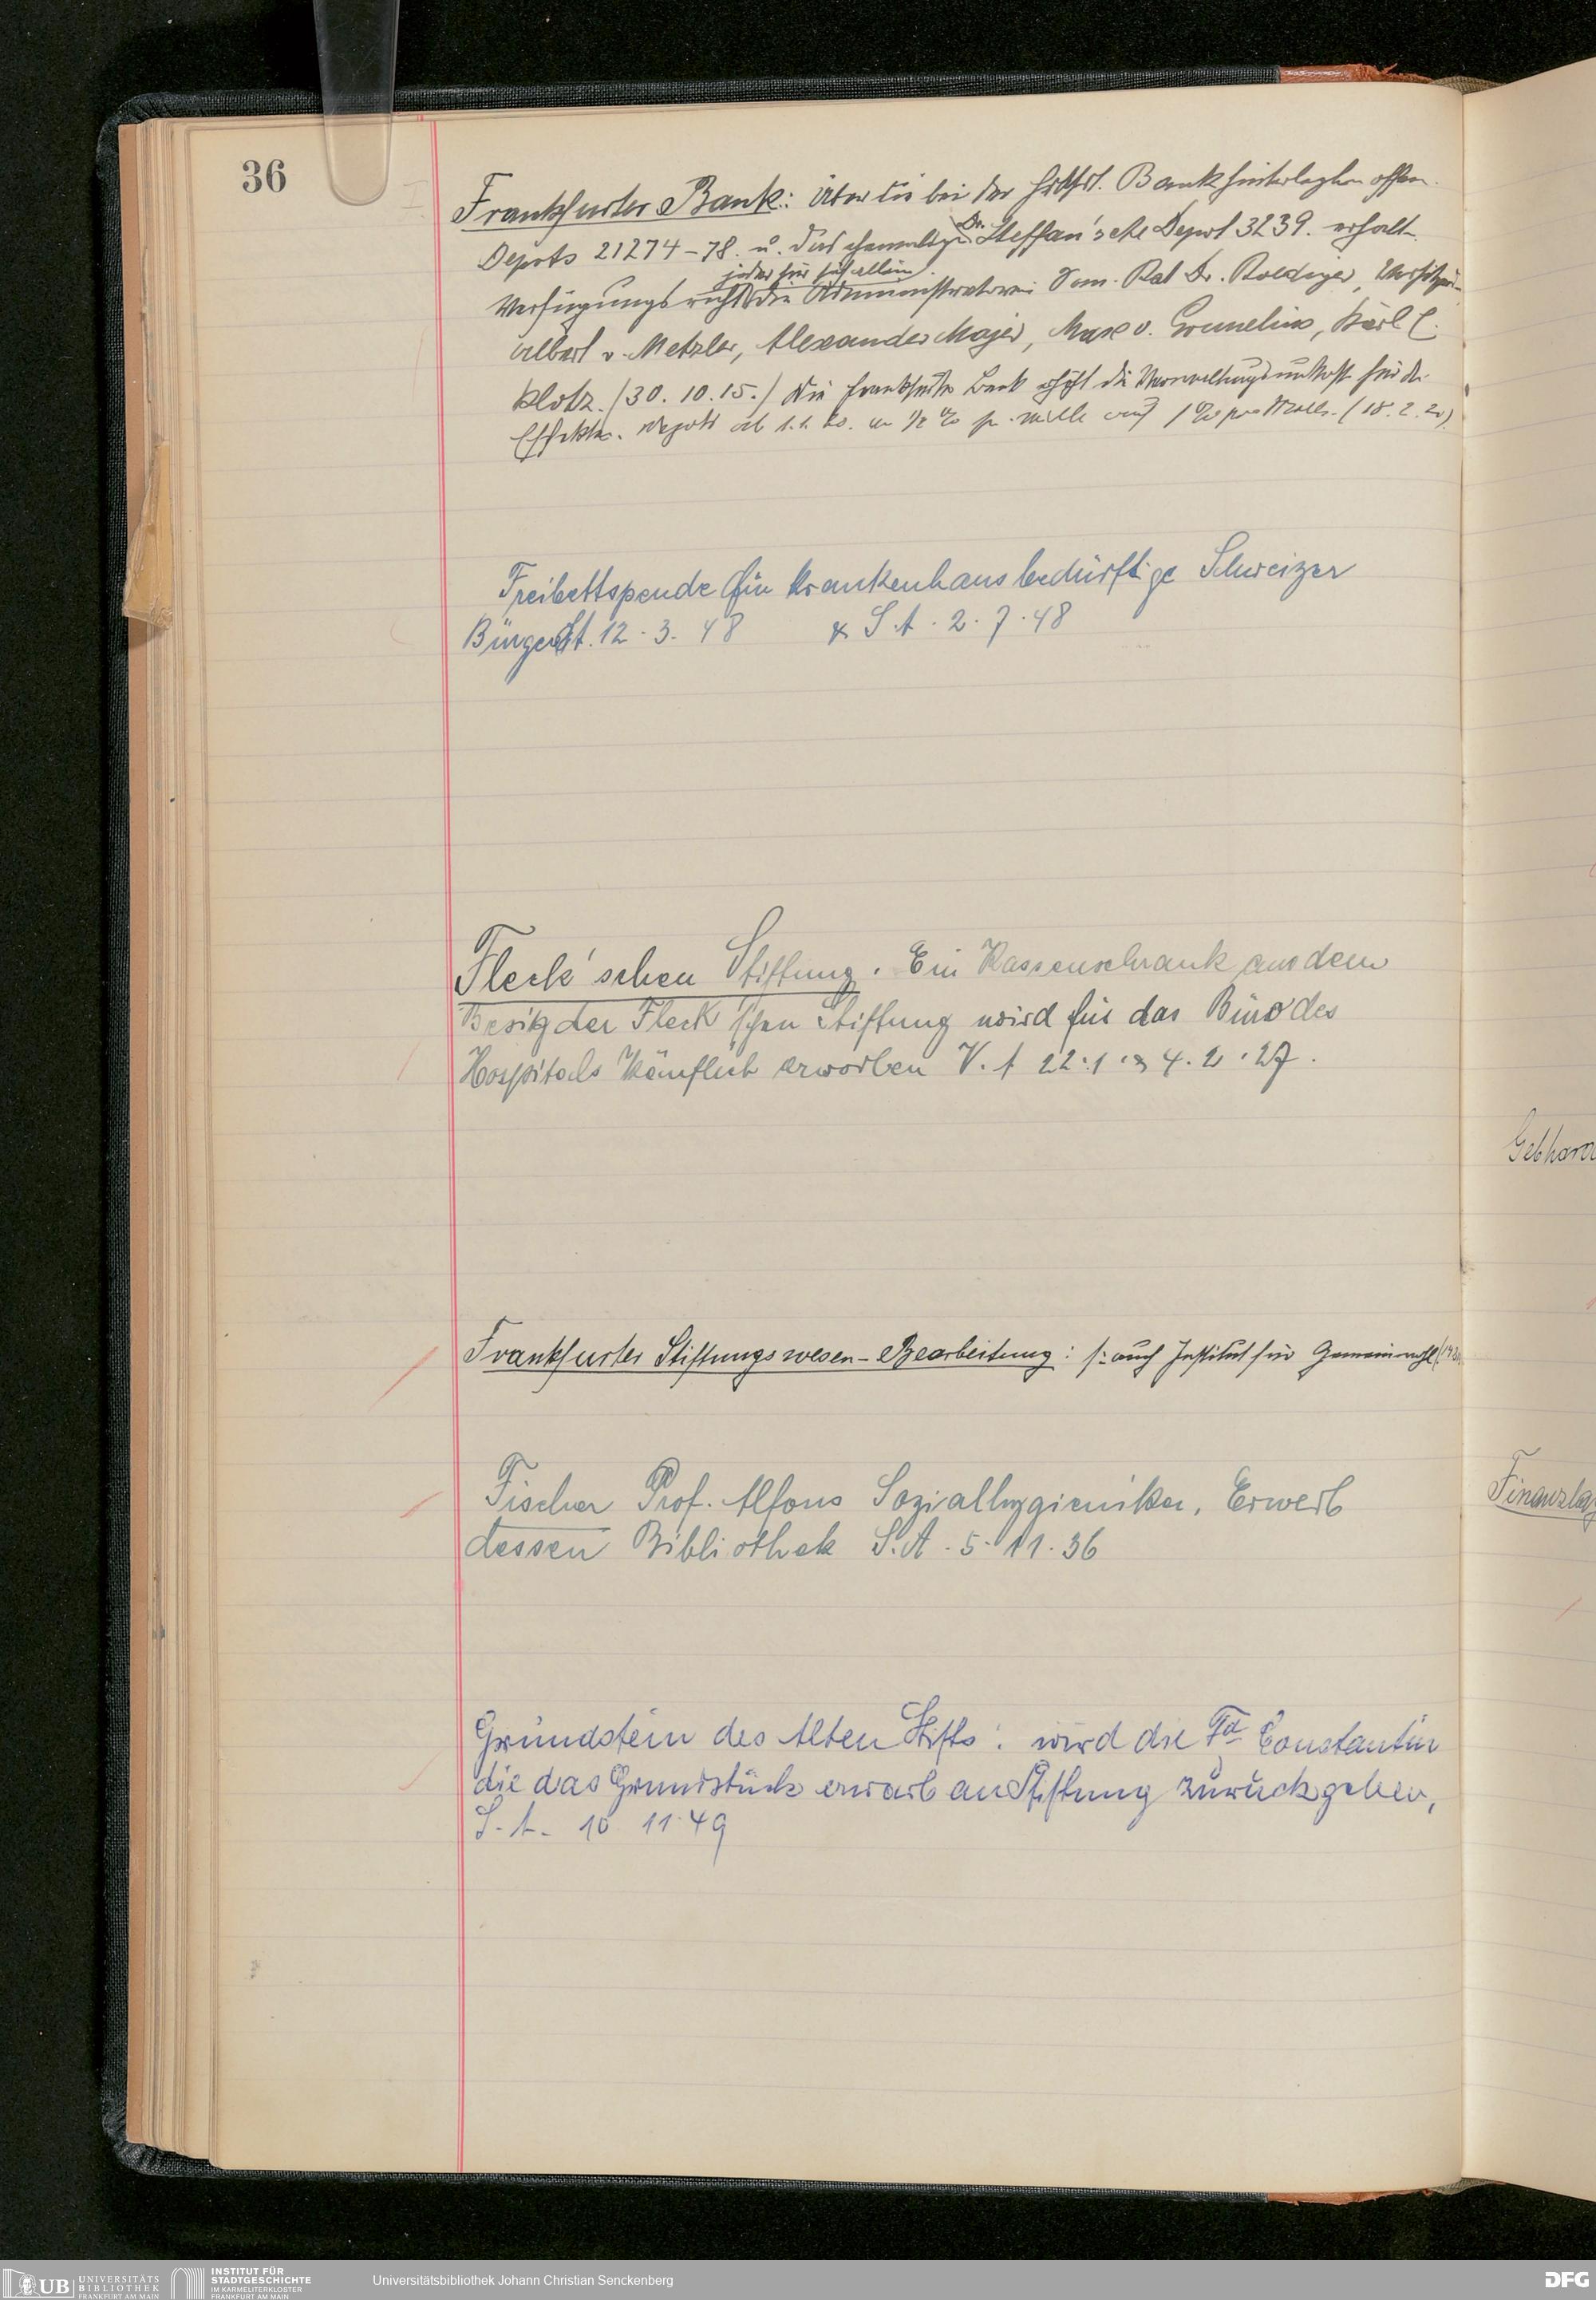 36
Frankfurter Bank: Über die bei der Frkft. Bank hinterlegten offen.
Depots 21274-78. u. das ehemalige Dr. Steffan'sche Depot 3239. erhalt.
jeder für sich allein
Verfügungsrecht die Administratoren San. Rat Dr. Roediger, Vorsitzen
Albert v. Metzler, Alexander Majer, Max v. Grunelius, Karl C.
Klotz. (30. 10. 15.) Die Frankfurter Bank erhöht die Verwaltungsunkost. für die
Effekten. Depots ab 1.1. 20. um ½ % pr. mille auf 1 % pro Mille. (18. 2. 20)
Freibettspende für krankenhausbedürftige Schweizer
Bürger St. 12. 3. 48 & S. A. 2. 7. 48
Fleck'schen Stiftung. Ein Kassenschrank aus dem
Besitz der Fleck'schen Stiftung wird für das Büro des
Hospitals käuflich erworben V. A 22. 1. & 4. 2. 27.
Frankfurter Stiftungswesen-Bearbeitung: s. auch Institut für Gemeinwohl
Fischer Prof. Alfons Sozialhygieniker, Erwerb
dessen Bibliothek S. A. 5. 11. 36
Grundstein des Alten Stifts: wird die Fa Constantin
die das Grundstück erwarb an Stiftung zurückgeben,
S. A. 10 11. 49
Gebhard
Finanzlag
UB UNIVERSITÄTS
BIBLIOTHEK
FRANKFURT AM MAIN
INSTITUT FÜR
STADTGESCHICHTE
IM KARMELITERKLOSTER
FRANKFURT AM MAIN
Universitätsbibliothek Johann Christian Senckenberg
DFG